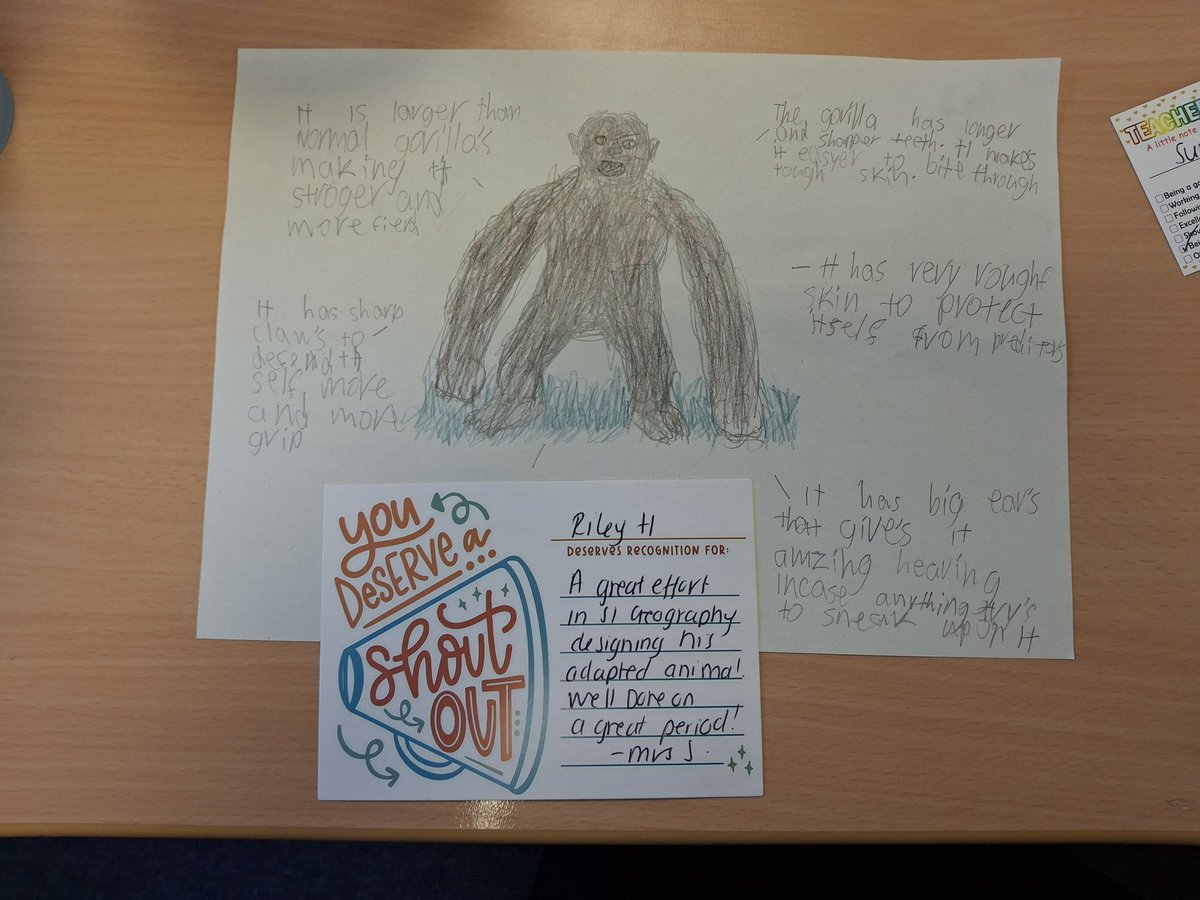 It is larger than
normal gorilla's
making it
stroger and
more fierd
The gorilla has longer
and sharper teeth. It makes
it easyer to bite through
tough skin.
- It has very rought
skin to protect
itself from preditors
It has sharp
claw's to
defend it
self more
and more
grip
It has big ear's
that give's it
amzing hearing
incase anything try's
to sneak up on it
you
DESERVE a...
shout
OUT
Riley H
DESERVES RECOGNITION FOR:
A great effort
in S1 Geography
designing his
adapted animal.
Well Done on
a great period!
-Mrs S.
TEACHE
A little note
Su
Being a go
Working
Followi
Excelle
Sho
Be
O